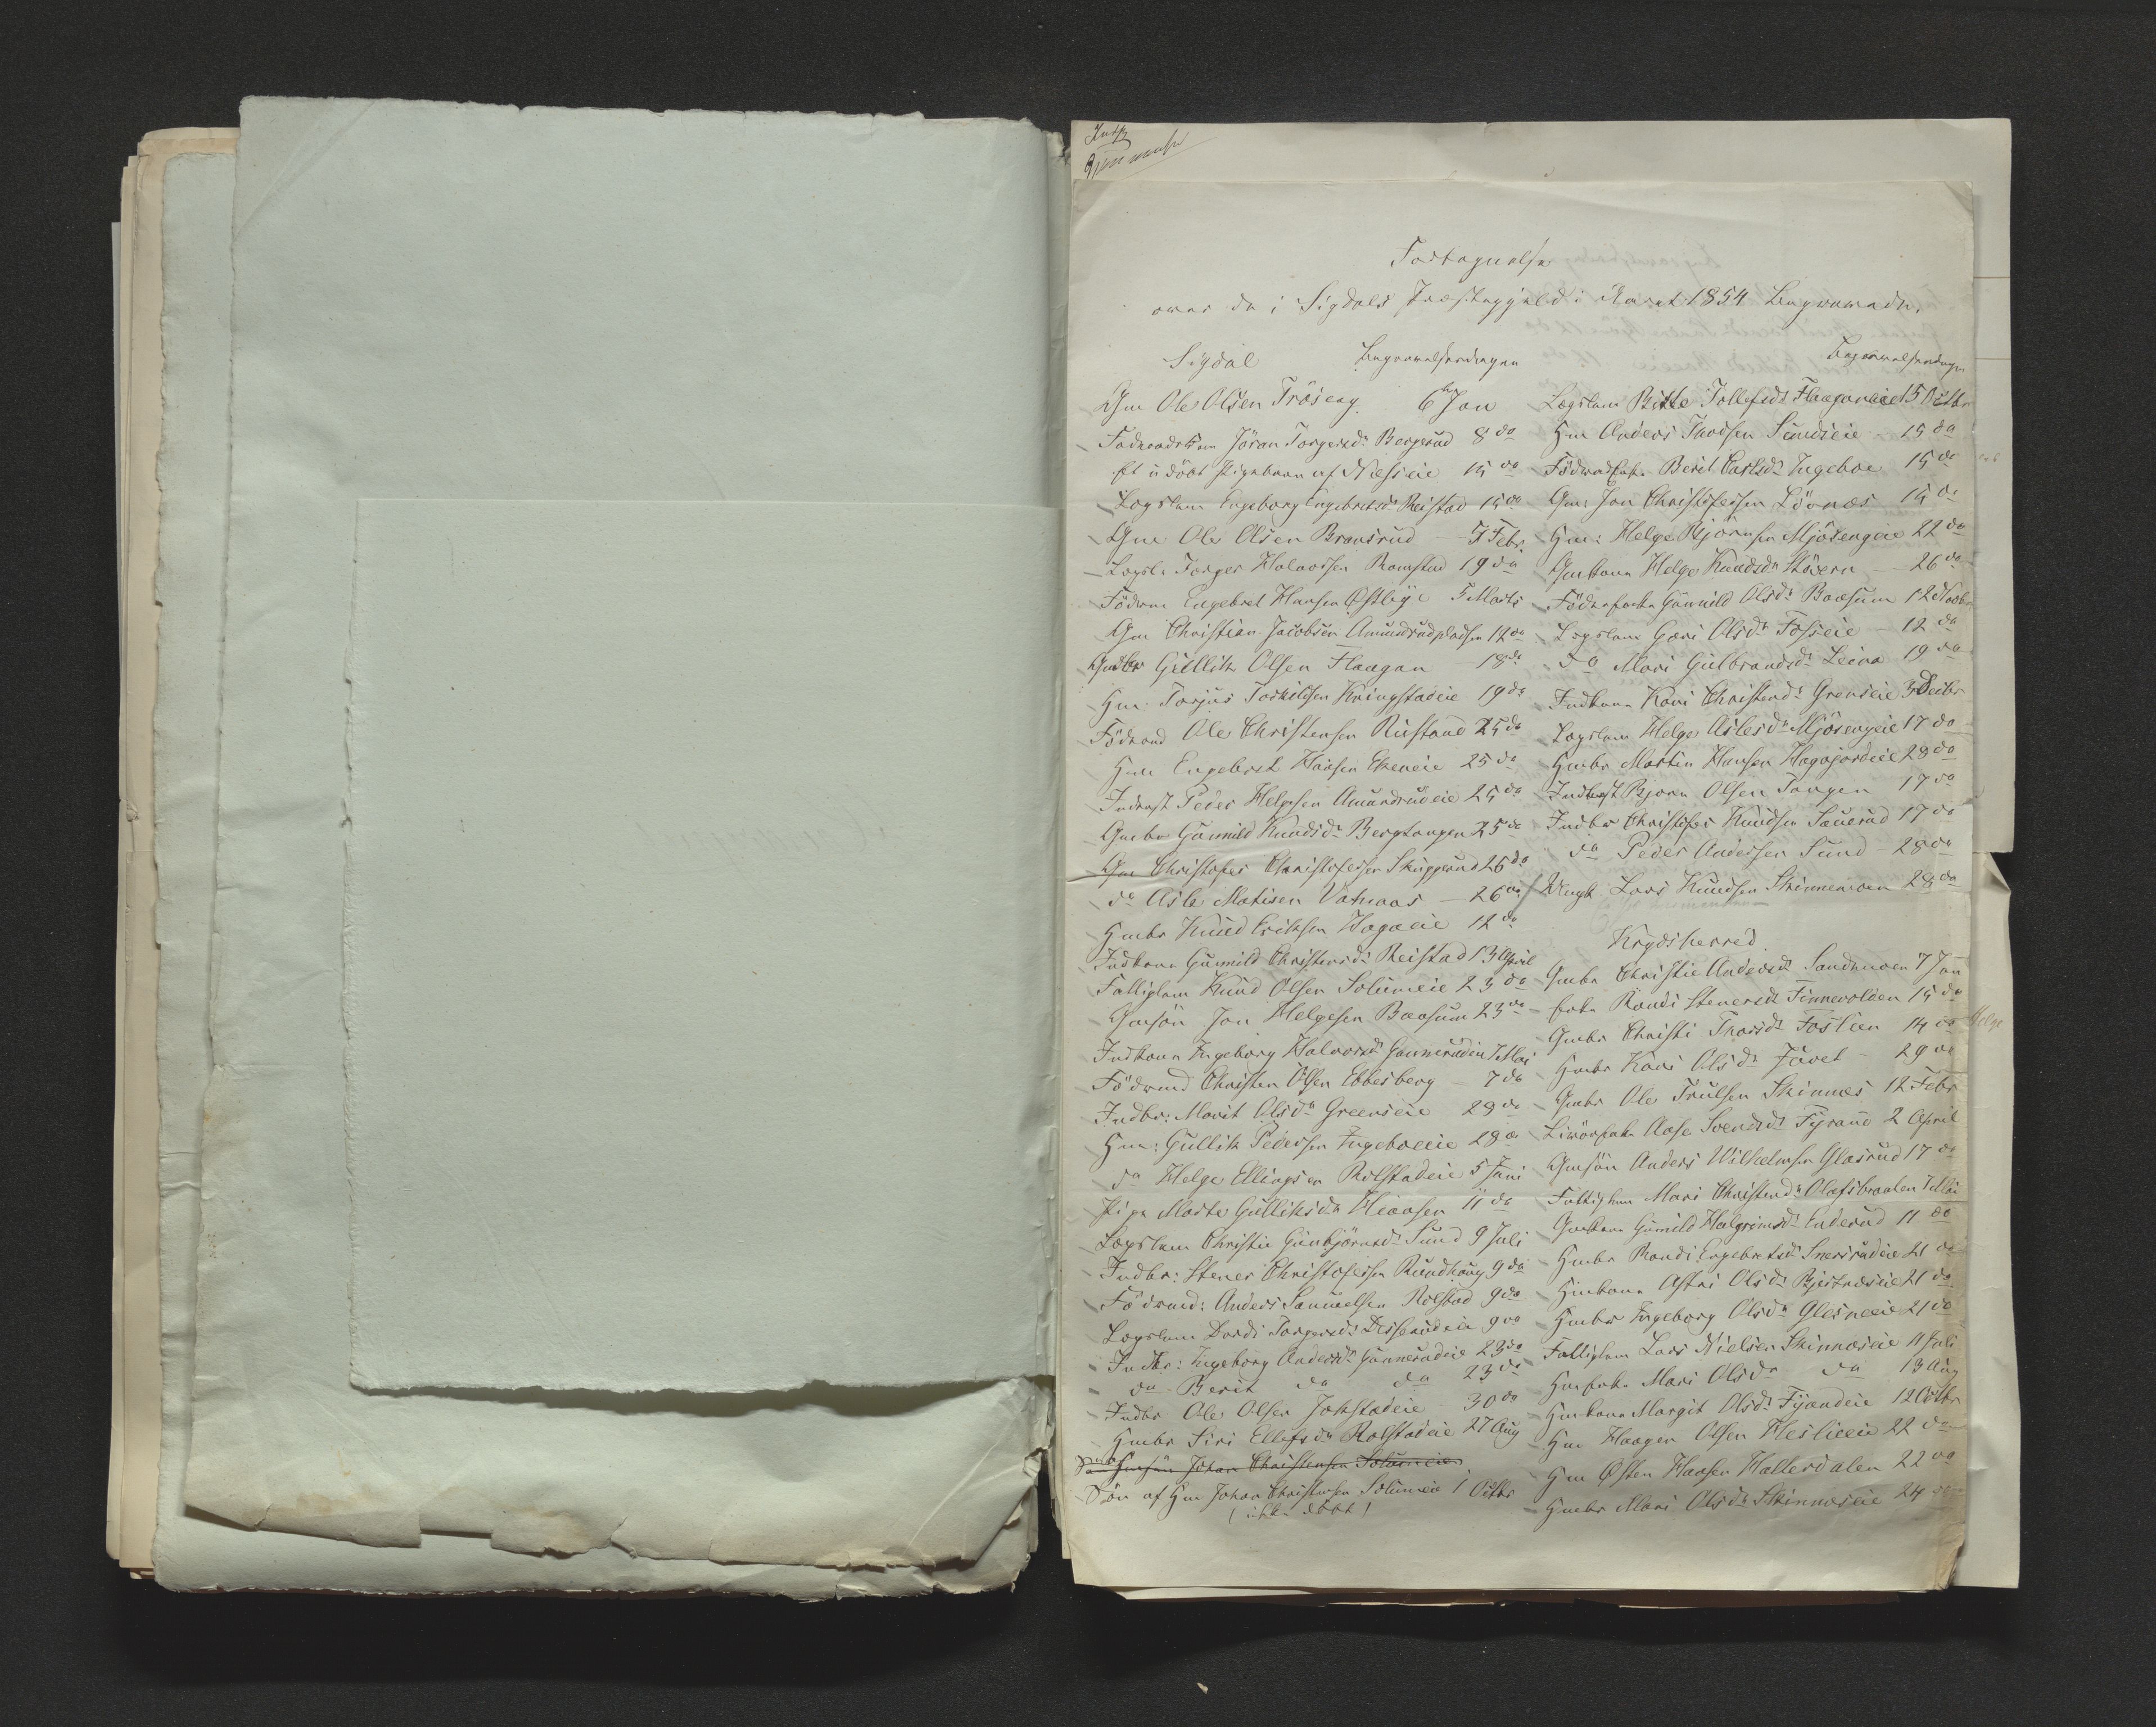 Fortegnelse
over de i Sigdals Præstegjeld i Aaret 1854 Begravede.
Sigdal Begravelsesdagen
Gm Ole Olsen Fröseng 6 Jan
Föderaads Jöran Torgersdr Bergerud 8 do
Et udöbt Pigebarn af Næseie 15 do
Lægslem Engeborg Engebretsdr Reistad 15 do
Gm Ole Olsen Bransrud 7 Febr.
Lægsl. Torger Halvorsen Ramstad 19 do
Födrm Engebret Hansen Østbye 5 Marts
Gm Christian Jacobsen Amundrudpladsen 12 do
Gullik Olsen Flaagan 18 do
Hm: Torjus Torkildsen Kringstadeie 19 do
Födrand Ole Christensen Rustand 25 do
Hm Engebret Hansen Ekeneie 25 do
Inderst Peder Helgesen Amundrudeie 25 do
Gmbr Gunnild Knudsdr Bergtangen 25 do
Gm Christofer Christofersen Skuggerud 26 do
do Asle Matisen Vatnaas 26 do
Hmbr Knud Eriksen Hagaeie 12 do
Indkone Gunnild Christensdr Reistad 13 April
Fattiglem Knud Olsen Solumeie 23 do
Gmsön Jon Helgesen Baasum 23 do
Indkone Ingeborg Halvorsdr Gunnerudeie 7 Mai
Födrmd Christen Olsen Ebbesberg 7 do
Indbr: Marit Olsdr Greenseie 28 do
Hm: Gullik Pedersen Ingeboeeie 28 do
do Helge Ellingsen Rolfstadeie 5 Juni
Pige Marte Gulliksdr Hiaasen 11 do
Lægslem Christie Gunbjörnsdr Sund 9 Juli
Indbr: Stener Christofersen Rundhaug 9 do
Födrmd: Anders Samuelsen Rolstad 9 do
Lægslem Dordi Torgersdr 9 do
Indbr: Ingeborg Andersdr Gunnerudeie 23 do
do Berit do do 23 do
Indbr Ole Olsen Jokstadeie 30 do
Hmbr Siri Ellefsdr Rolfstadeie 27 Aug
Johan Christensen Solumeie
Sön af Hm Johan Christensen Solumeie 1 Octbr
(ikke döbt)
Begravelsesdagen
Lægslem Birthe Tollefsdr Flaaganeie 15 Octbr
Hm Anders Thorsen Sundseie 15 do
Berit Carlsdr Ingeboe 15 do
Gm: Jon Christofersen Lövnæs 15 do
Hm: Helge Björnsen Mjösengeie 22 do
Gmkone Helge Knudsdr Stövern 26 do
Gunnild Olsdr Baasum 12 Novbr
Lægslem Gori Olsdr Fosseie 12 do
do Mari Gulbrandsdr Leira 19 do
Indkone Kari Christensdr Grenseie 3 Decbr
Lægslem Helge Aslesdr Mjösengeie 17 do
Hmbr Martin Hansen Hagajordeie 28 do
Inderst Bjorn Olsen Tangen 17 do
Indbr Christofer Knudsen Sauerud 17 do
do Peder Andersen Sund 28 do
Ungk Lars Knudsen Skinnemoen 28 do
Krydsherred.
Gmbr Christie Andersdr Sandmoen 7 Jan
Enke Randi Stenersdr Finnevolden 15 do
Gmbr Christi Thorsdr Foslien 14 do
Hmbr Kari Olsdr Juvet 29 do
Gmbr Ole Trulsen Skinnes 12 Febr
Aase Svendsdr Fyrand 2 April
Gmsön Anders Wilhelmsen Glæsrud 17 do
Fattiglem Mari Christensdr Olafsbraaten 7 Mai
Gmkone Gunild Halgrimsdr Enderud 11 do
Hmbr Randi Engebretsdr Snersrudeie 21 do
Hmkone Astri Olsdr Bjertnæseie 21 do
Hmbr Ingeborg Olsdr Glesneeie 21 do
Fattiglem Lars Nielsen Skinneseie 11 Juli
Hmenke Mari Olsdr do 13 Aug
Hmkone Margit Olsdr Fyrandeie 12 Octbr
Hm Haagen Olsen Heslieeie 22 do
Hm Østen Hansen Hallersdalen 22 do
Hmbr Mari Olsdr Skinneseie 24 do
Helge